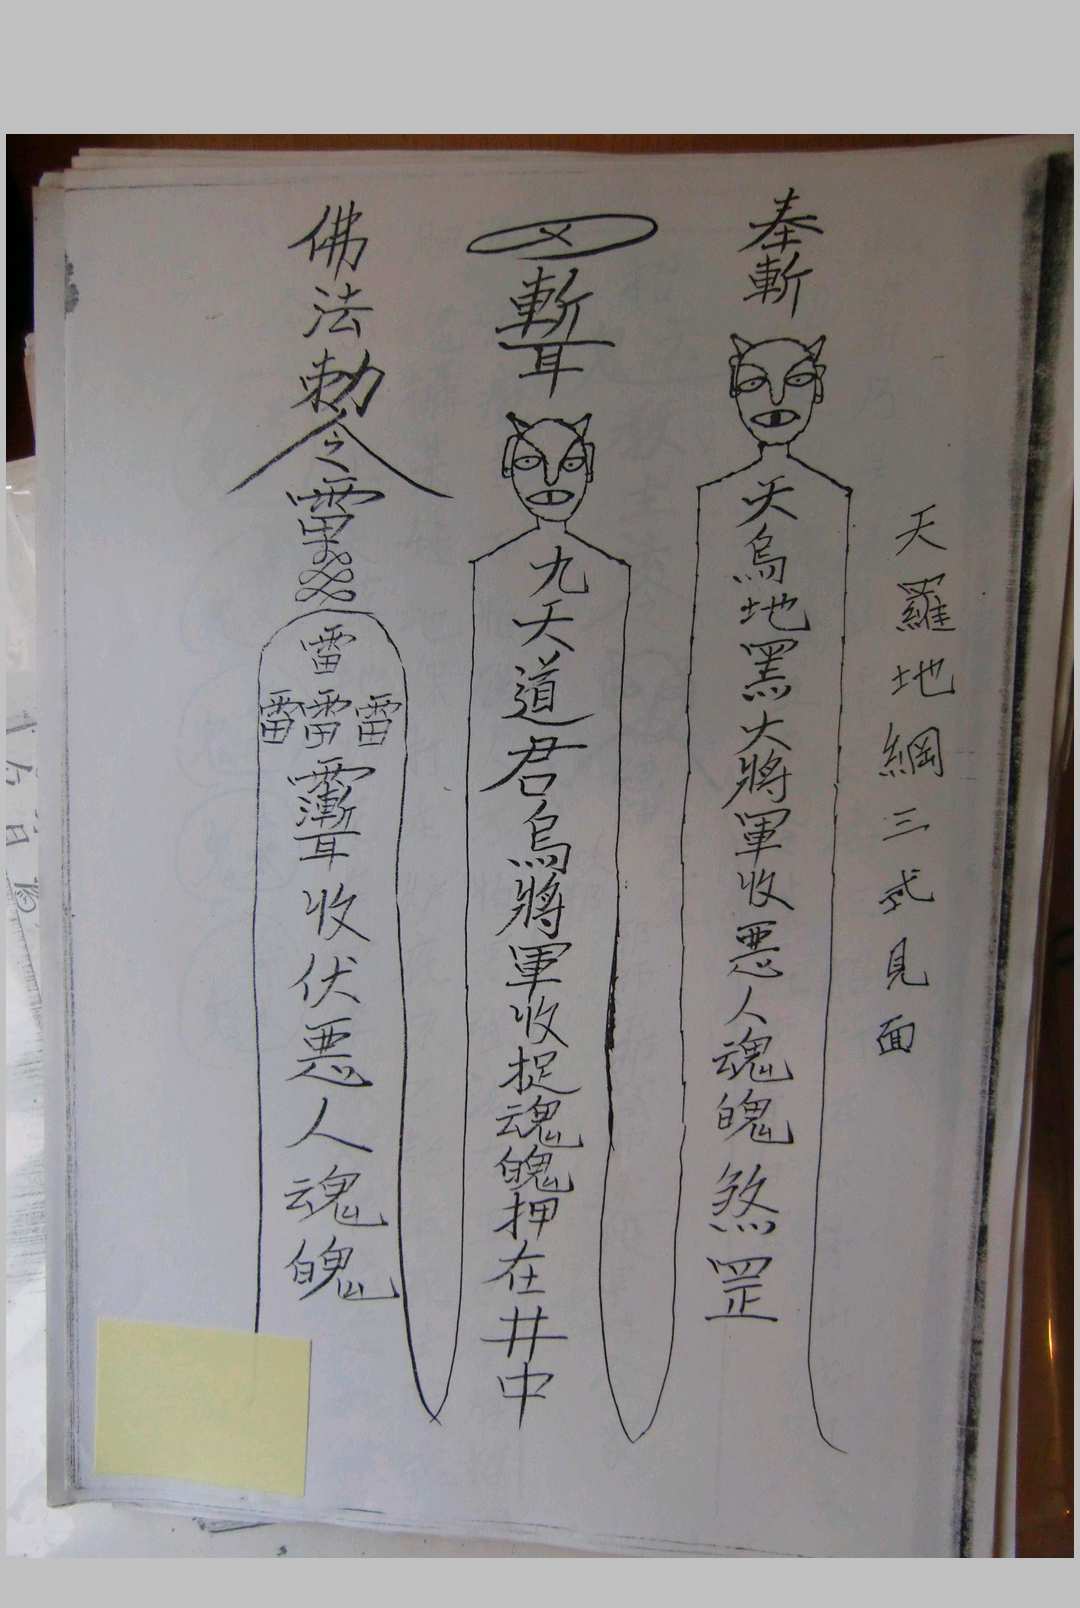 天羅地綱三式見面
奉斬
天烏地黑大將軍收悪人魂魄煞罡
九天道君烏將軍收捉魂魄押在井中
佛法勅令
雷
雷雷雷
收伏悪人魂魄